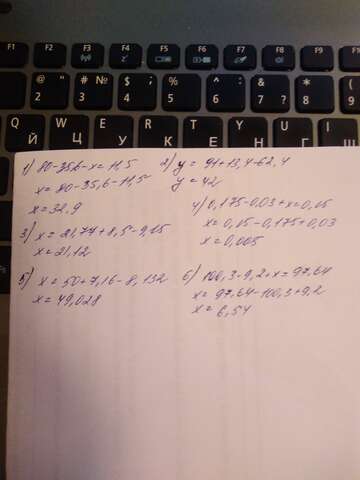 F1 F2 F3 F4 F5 F6 F7 F8 F9
@ " # № $ ; % ^ : & ? *
2 3 4 5 6 7 8
Q W E R T Y U
Й Ц У К Е Н Г Ш
1) 80-35,6-x=11,5
x=80-35,6-11,5
x=32,9
2) y=91+13,4-62,4
y=42
3) x=21,77+8,5-9,15
x=21,12
4) 0,175-0,03+x=0,15
x=0,15-0,175+0,03
x=0,005
5) x=50+7,16-8,132
x=49,028
6) 100,3-9,2+x=97,64
x=97,64-100,3+9,2
x=6,54